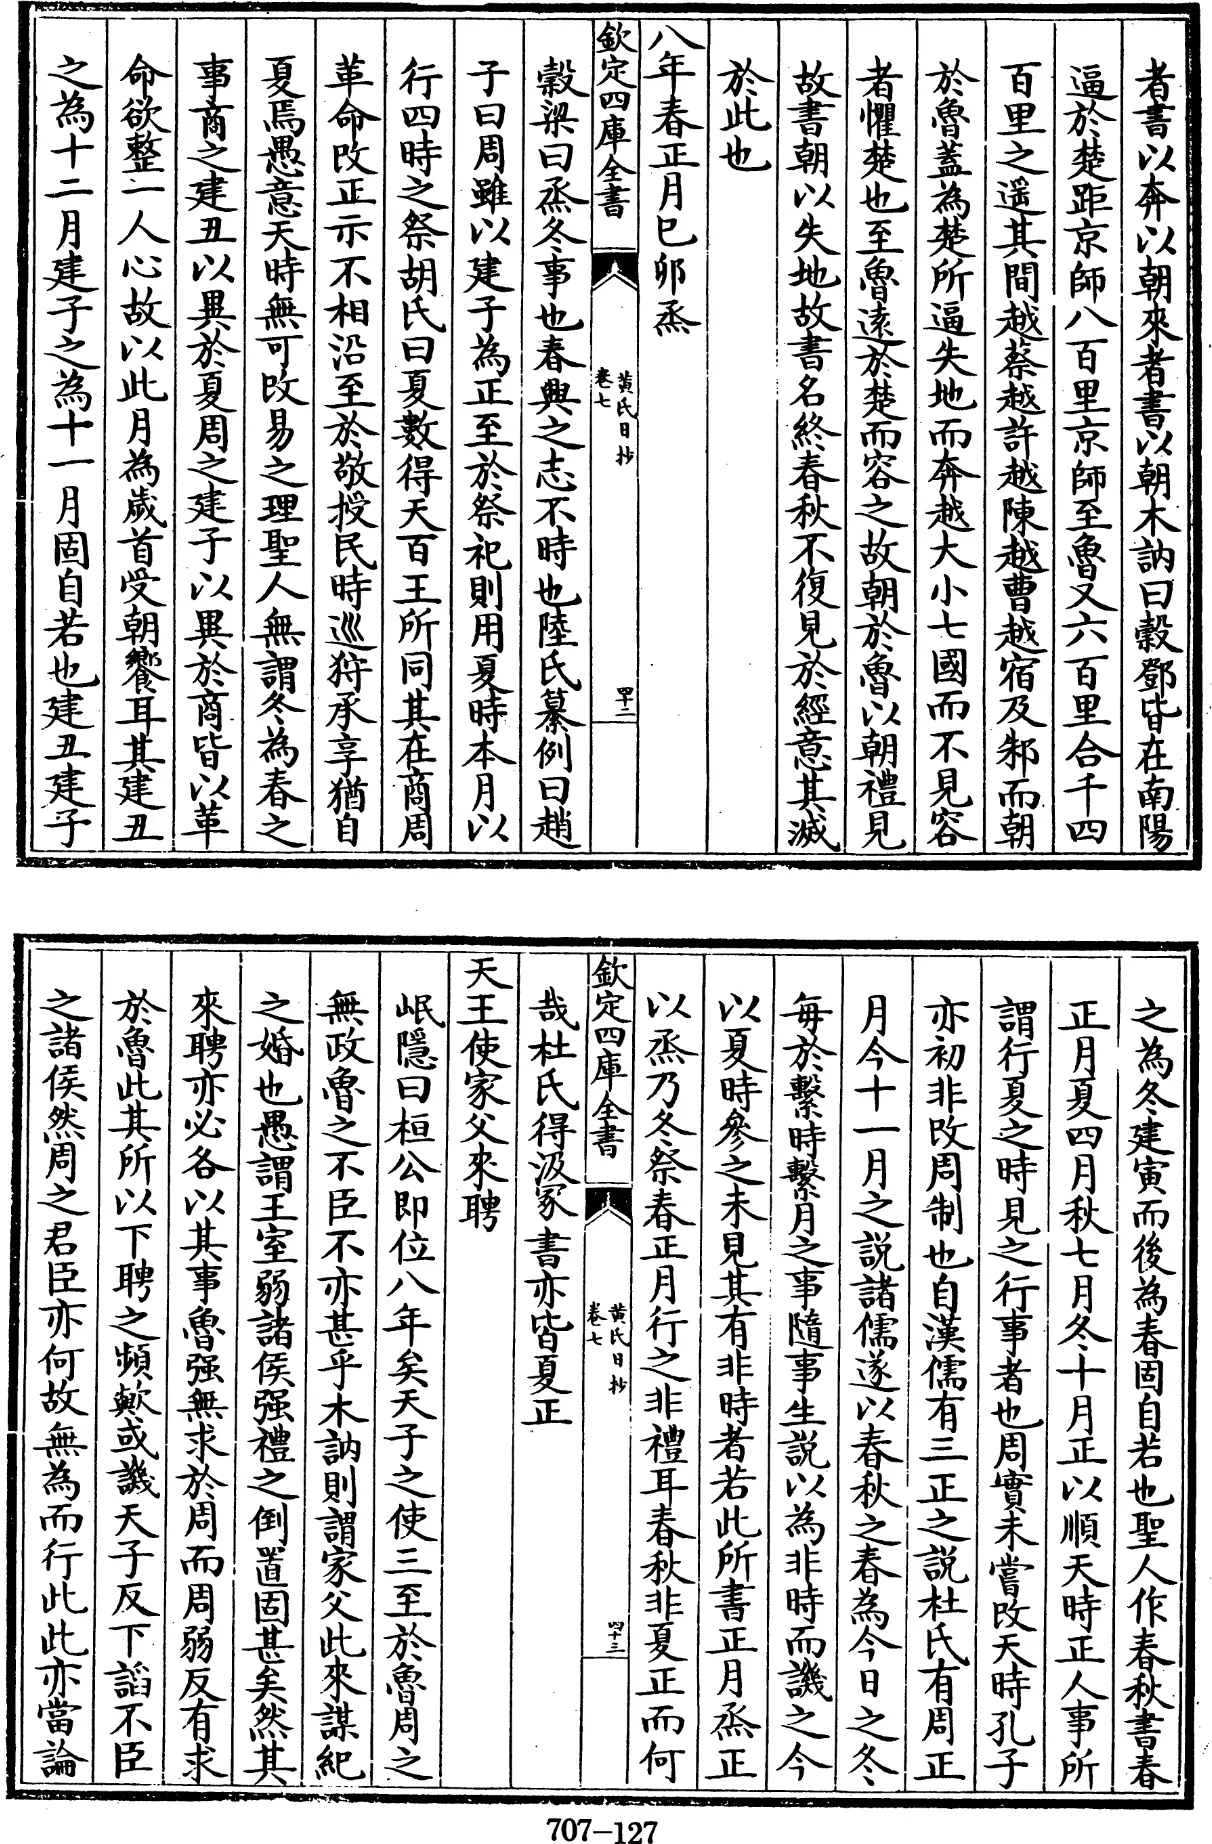 者書以奔以朝來者書以朝木訥曰穀鄧皆在南陽
逼於楚距京師八百里京師至魯又六百里合千四
百里之遥其間越蔡越許越陳越曹越宿及邾而朝
於魯蓋為楚所逼失地而奔越大小七國而不見容
者懼楚也至魯逺於楚而容之故朝於魯以朝禮見
故書朝以失地故書名終春秋不復見於經意其滅
於此也
八年春正月己卯烝
欽定四庫全書
黄氏日抄
卷七
四十二
穀梁曰烝冬事也春興之志不時也陸氏纂例曰趙
子曰周雖以建子為正至於祭祀則用夏時本月以
行四時之祭胡氏曰夏數得天百王所同其在商周
革命改正示不相沿至於敬授民時巡狩承享猶自
夏焉愚意天時無可改易之理聖人無謂冬為春之
事商之建丑以異於夏周之建子以異於商皆以革
命欲整一人心故以此月為歲首受朝饗耳其建丑
之為十二月建子之為十一月固自若也建丑建子
之為冬建寅而後為春固自若也聖人作春秋書春
正月夏四月秋七月冬十月正以順天時正人事所
謂行夏之時見之行事者也周實未嘗改天時孔子
亦初非改周制也自漢儒有三正之說杜氏有周正
月今十一月之說諸儒遂以春秋之春為今日之冬
毎於繫時繫月之事隨事生説以為非時而譏之今
以夏時參之未見其有非時者若此所書正月烝正
以烝乃冬祭春正月行之非禮耳春秋非夏正而何
欽定四庫全書
黄氏日抄
卷七
四十三
哉杜氏得汲冢書亦皆夏正
天王使家父來聘
岷隱曰桓公即位八年矣天子之使三至於魯周之
無政魯之不臣不亦甚乎木訥則謂家父此來謀紀
之婚也愚謂王室弱諸侯强禮之倒置固甚矣然其
來聘亦必各以其事魯强無求於周而周弱反有求
於魯此其所以下聘之頻歟或譏天子反下謟不臣
之諸侯然周之君臣亦何故無為而行此此亦當論
707-127